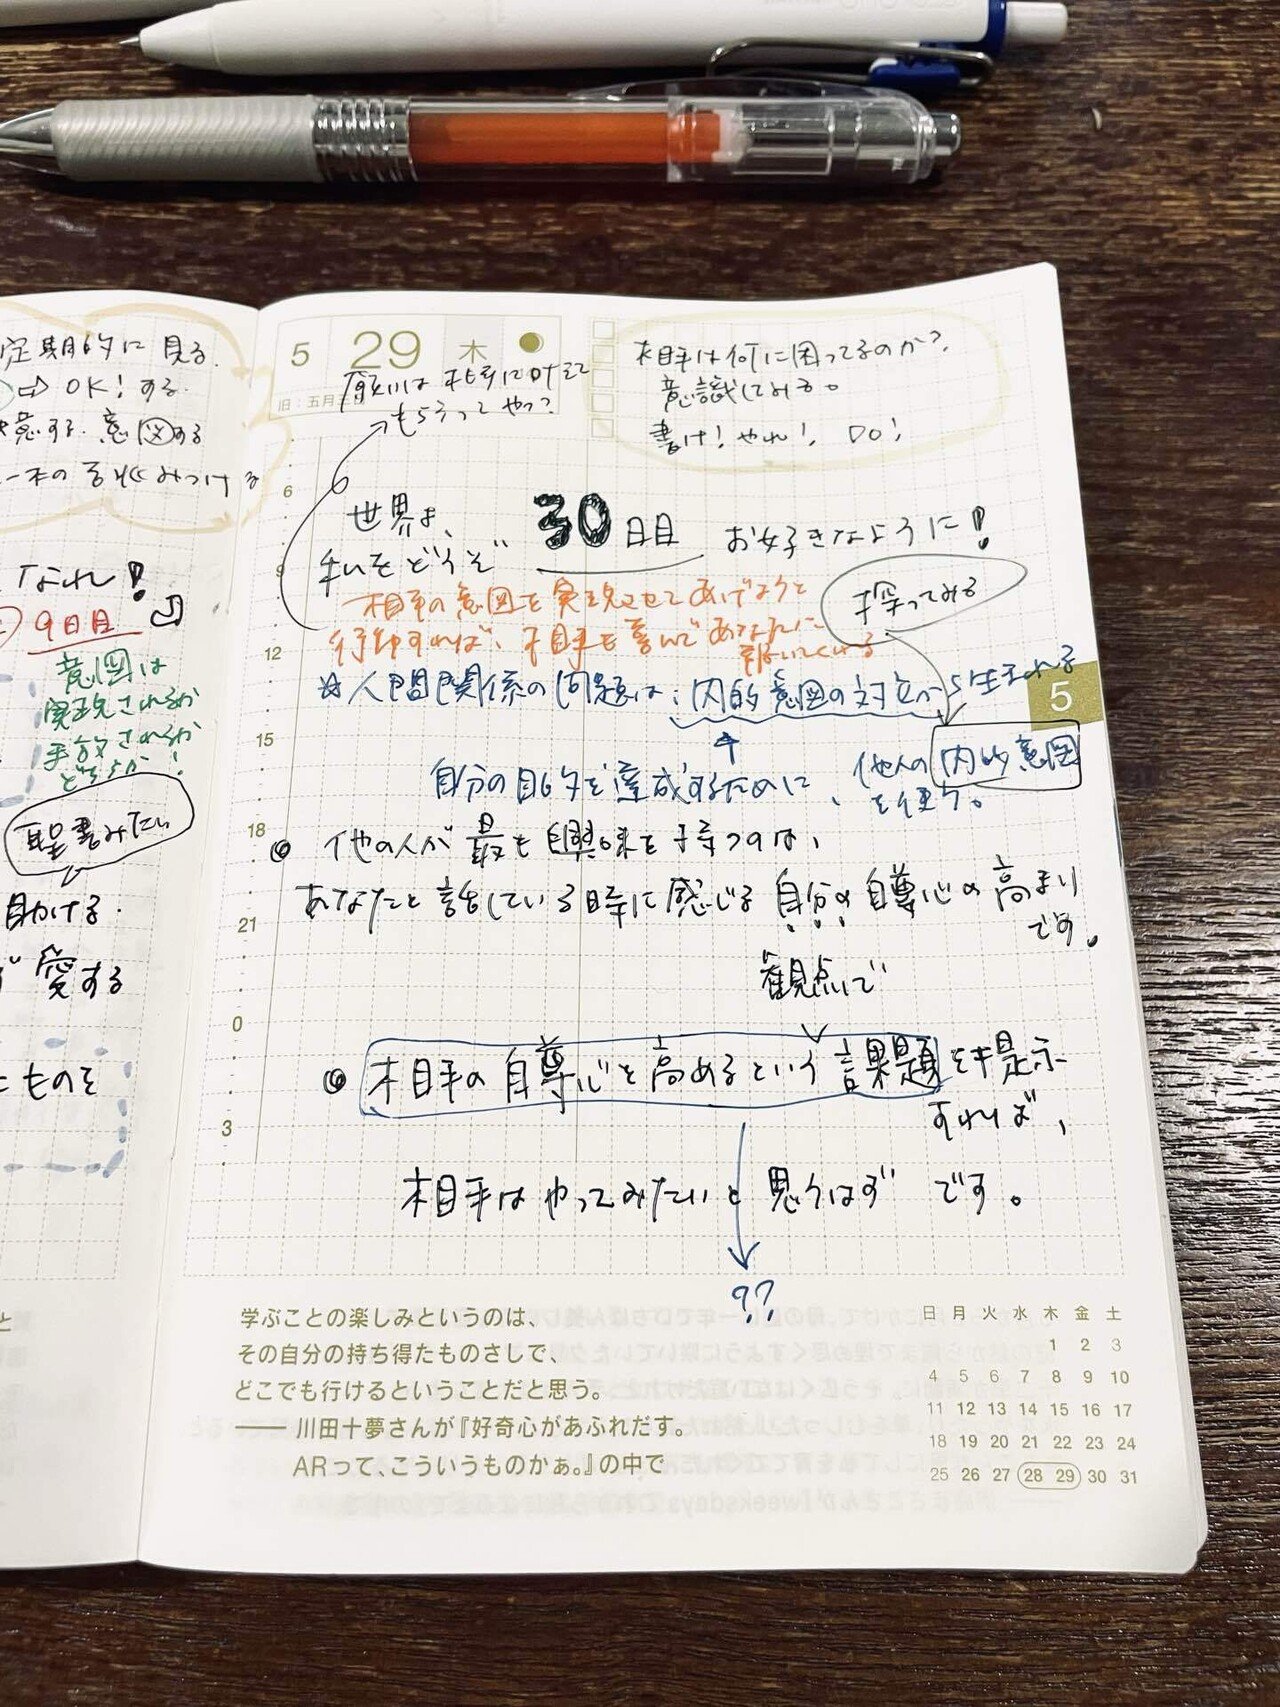 定期的に見る
⇨ OK!する
意する.意図する
なれ!
9日目
意図は
実現されるか
手放されるか
どちらか!
聖書みたい
助ける.
愛する
ものを
5 29 木
旧:五月三
願いは 相手に叶えて
もらうってやつ?
相手は何に困ってるのか?
意識してみる。
書け!やれ! DO!
世界よ、
私をどうぞ
30日目 お好きなように!
相手の意図を実現させてあげようと
行動すれば、相手も喜んであなたに
報いてくれる
探ってみる
☆人間関係の問題は:内的意図の対立から生まれる
5
自分の目的を達成するために、他人の内的意図
を使う。
◎ 他の人が最も興味を持つのは、
あなたと話している時に感じる自分の自尊心の高まり
です。
観点で
◎ 相手の自尊心を高めるという課題を提示
すれば、
相手はやってみたいと思うはず です。
??
6
9
12
15
18
21
0
3
学ぶことの楽しみというのは、
その自分の持ち得たものさしで、
どこでも行けるということだと思う。
—— 川田十夢さんが『好奇心があふれだす。
ARって、こういうものかぁ。』の中で
日 月 火 水 木 金 土
1 2 3
4 5 6 7 8 9 10
11 12 13 14 15 16 17
18 19 20 21 22 23 24
25 26 27 28 29 30 31